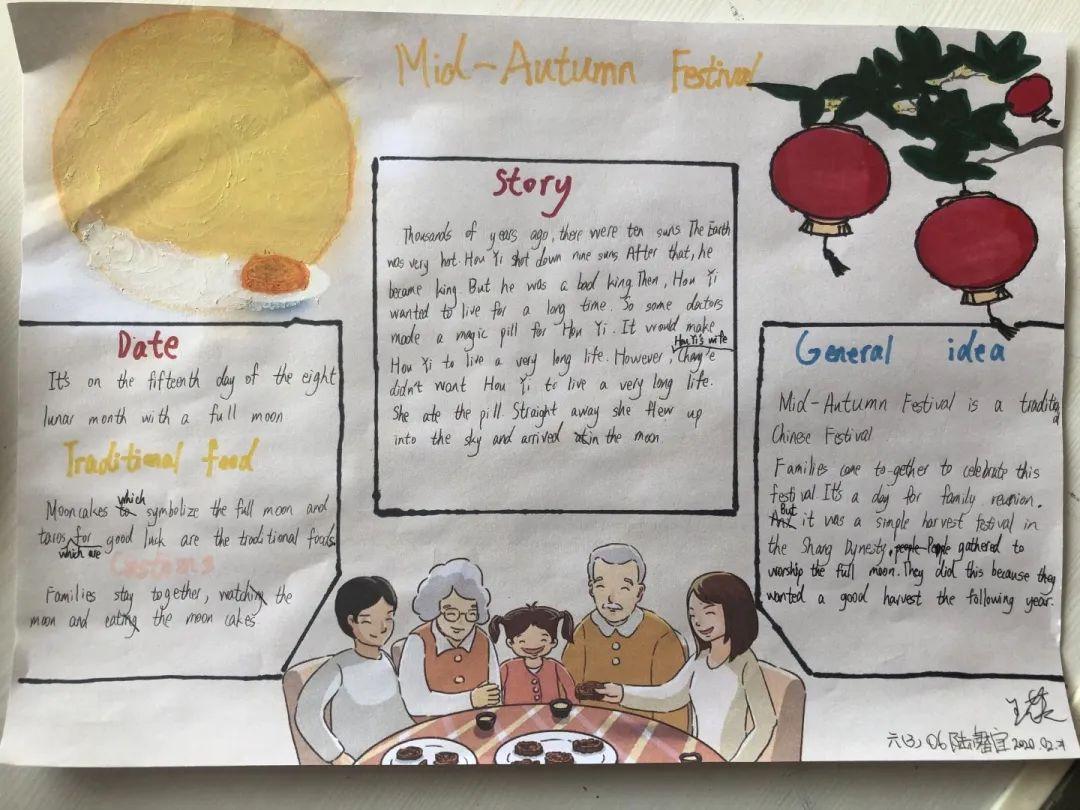 Mid-Autumn Festival
Story
Thousands of years ago, there were ten suns The Earth
was very hot. Hou Yi shot down nine suns After that, he
became king. But he was a bad king. Then, Hou Yi
wanted to live for a long time. So some doctors
made a magic pill for Hou Yi. It would make
Hou Yi to live a very long life. However, Chang'e
Hou Yi's wife
didn't want Hou Yi to live a very long life.
She ate the pill. Straight away she flew up
into the sky and arrived in the moon
Date
It's on the fifteenth day of the eight
lunar month with a full moon
Traditional food
Mooncakes which symbolize the full moon and
taros for good luck are the traditional foods.
which are
Customs
Families stay together, watching the
moon and eating the moon cakes
General idea
Mid-Autumn Festival is a traditio
Chinese Festival
Families come to-gether to celebrate this
festival It's a day for family reunion.
But
it was a simple harvest festival in
the Shang Dynesty. people People gathered to
worship the full moon. They did this because they
wanted a good harvest the following year.
六(3) 06 陆馨宜 2020.02.